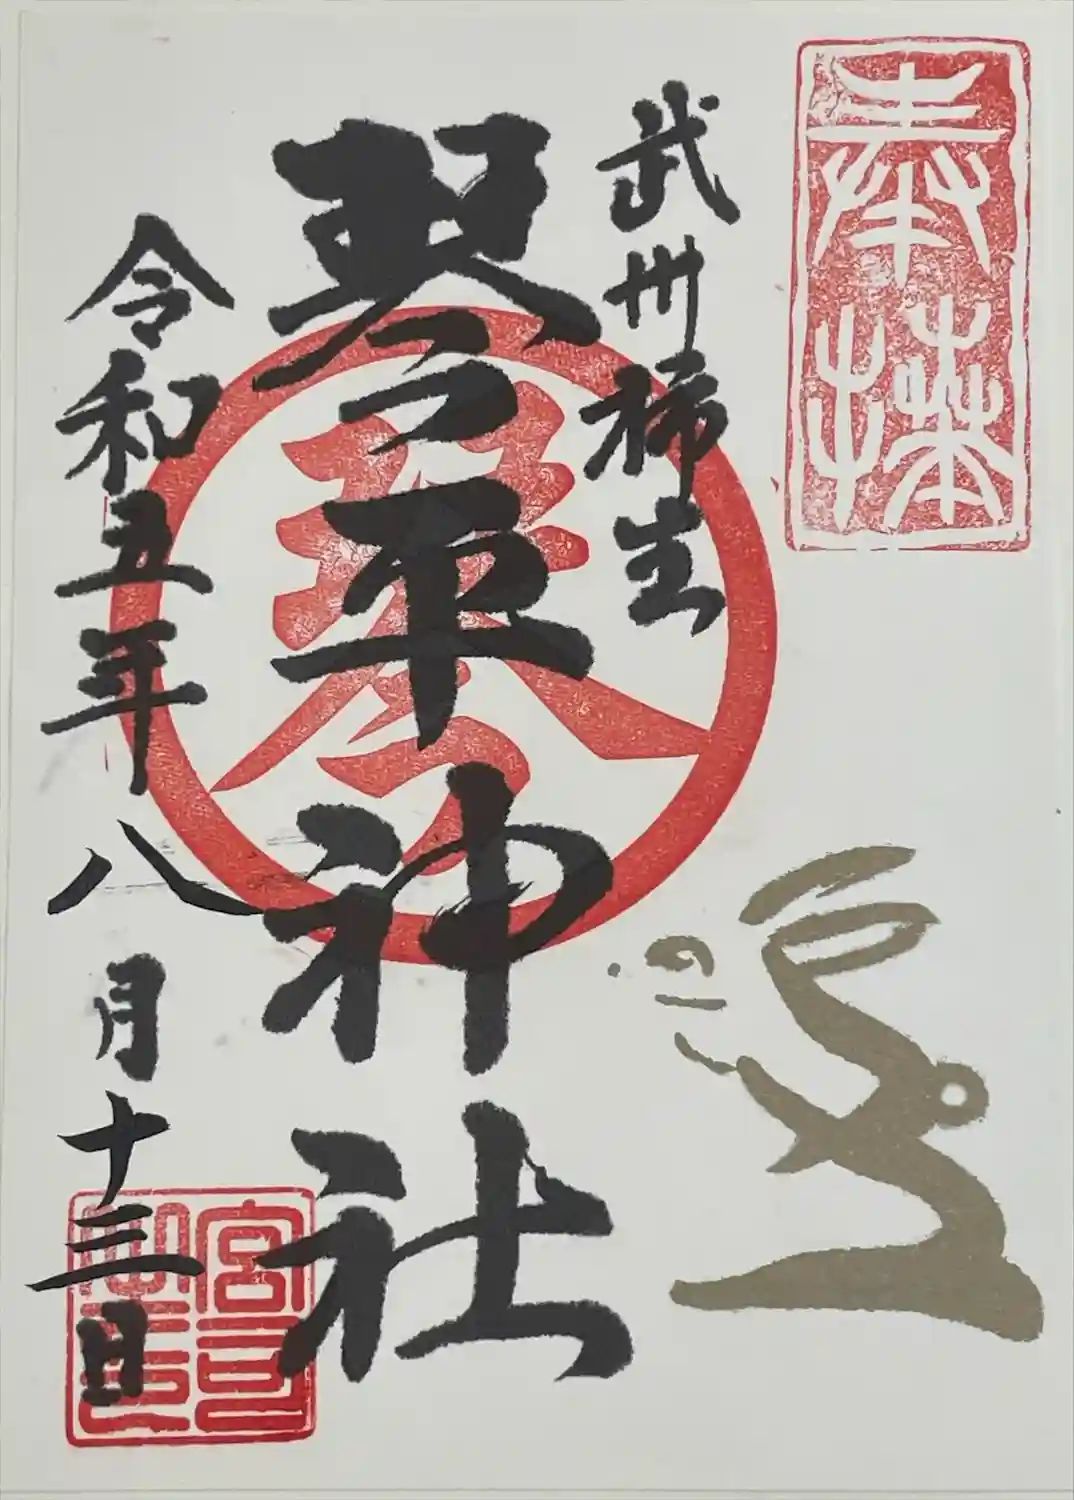 奉拝
武州柿生
琴平神社
令和五年八月十三日
宮司之印